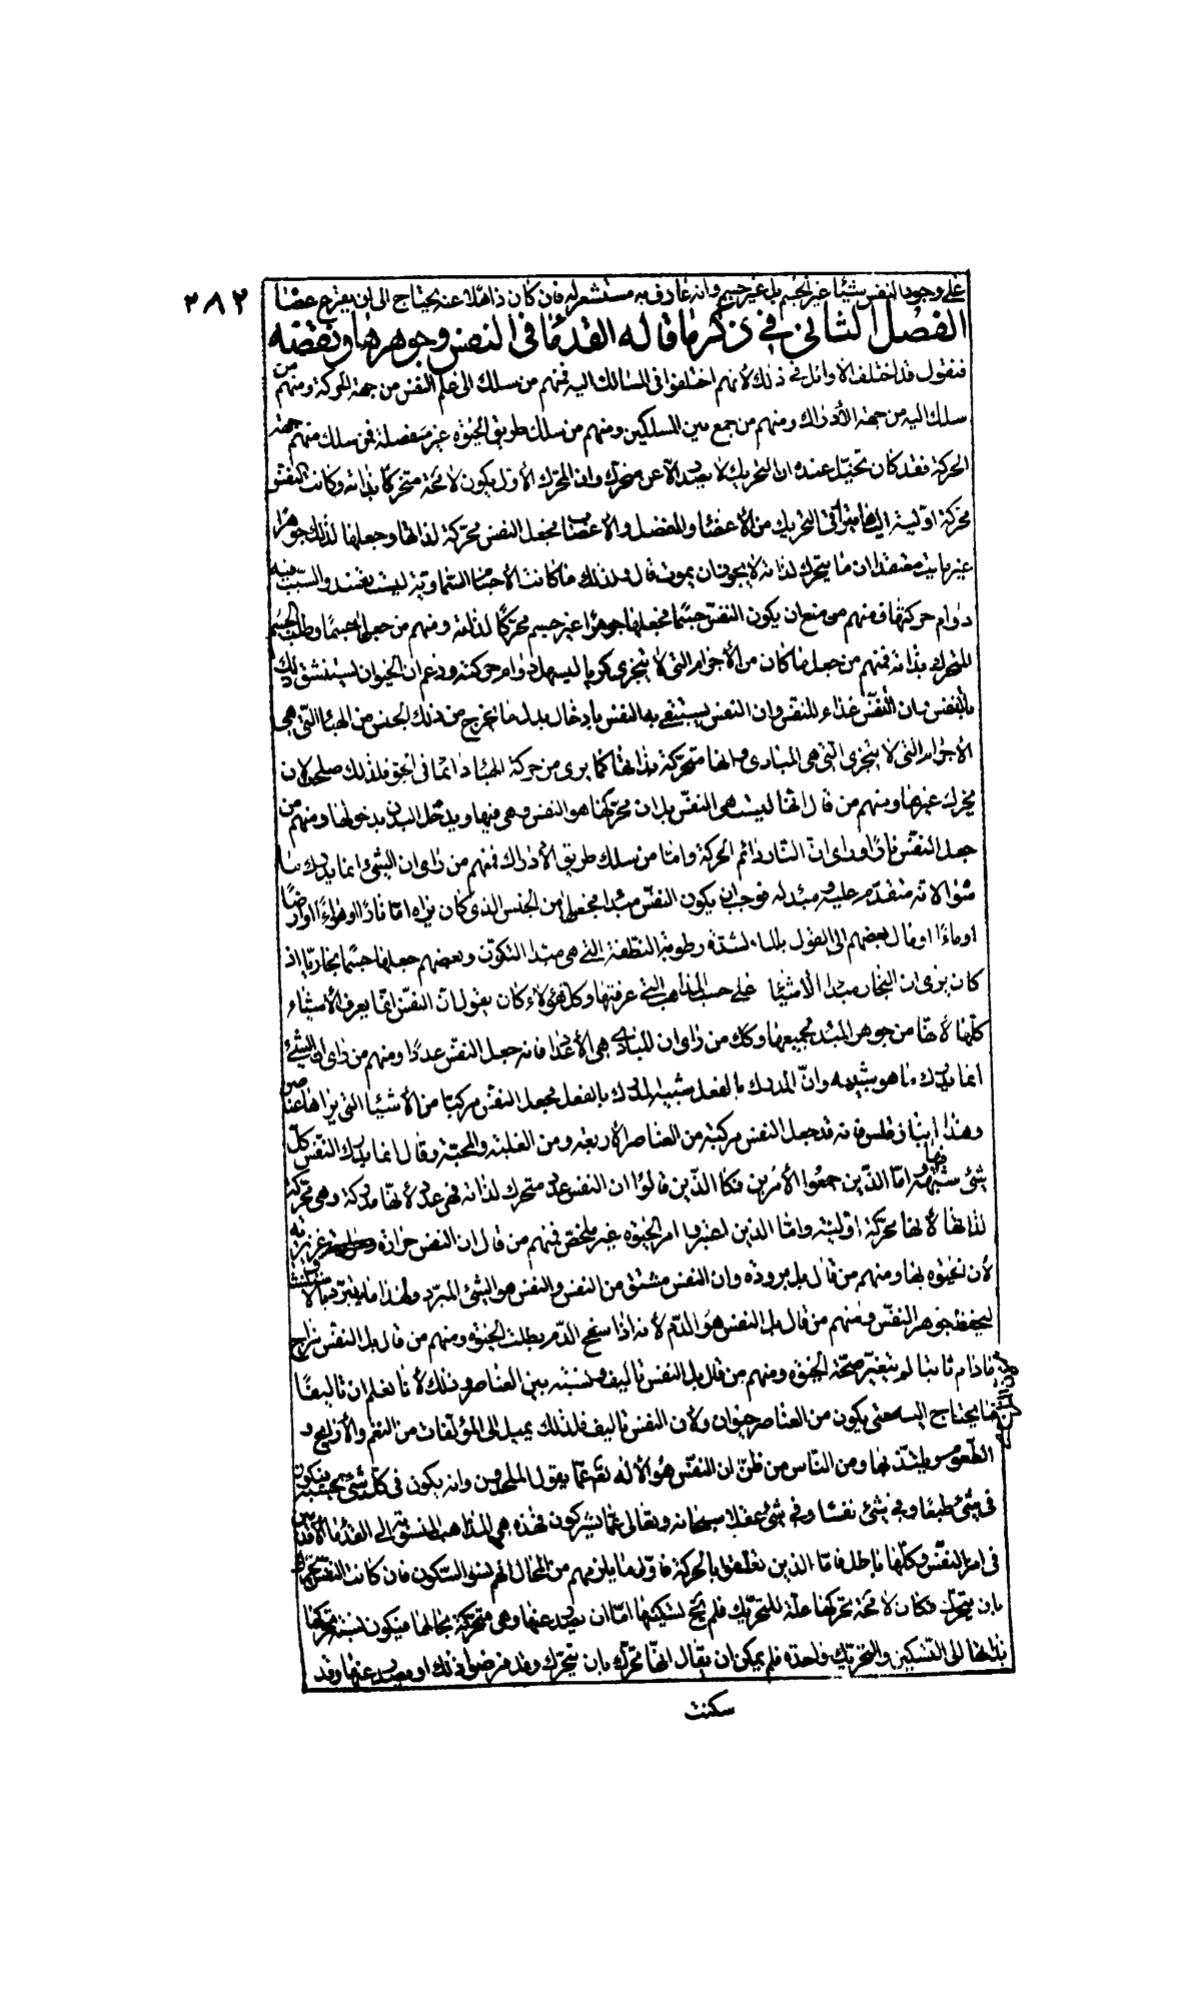 ٢٨٢
على وجود النفس شيئا غير الجسم بل غير جسم وانه عارف به مستشعر له فان كان ذاهلا عنه يحتاج الى ان يقرع عصاه
الفصل الثانى فى ذكر ما قاله القدما فى النفس وجوهرها ونقضه
فنقول قد اختلف الاوائل فى ذلك لأنهم اختلفوا فى المسالك اليه فمنهم من سلك الى علم النفس من جهة الحركة ومنهم من
سلك اليه من جهة الأدراك ومنهم من جمع بين المسلكين ومنهم من سلك طريق الحيوة غير مفصلة فمن سلك منهم جهة
الحركة فقد كان تخيّل عنده ان التحريك لا يصدر الّا عن متحرك وان المحرك الأول يكون لا محة متحركا بذاته وكانت النفس
محركة اولية اليها يتراقى التحريك من الأعضا والعضل والأعصاب فجعل النفس متحركة لذاتها وجعلها لذلك جوهرا
غير مايت معتقدا ان ما يتحرك لذاته لا يجوز ان يموت قال ولذلك ما كانت الأجسام السماوية ليست تفسد والسبب فيه
دوام حركتها فمنهم من منع ان يكون النفس جسما فجعلها جوهرا غير جسم محركا لذاته ومنهم من جعلها جسما وطلب الجسم
المتحرك بذاته فمنهم من جعلها ما كان من الأجرام التى لا يتجزى كريا ليسهل دوام حركته وزعم ان الحيوان يستنشق ذلك
بالتنفس وان النفس غذاء للنفس وان النفس يستبقى به النفس بادخال بدل ما يخرج من ذلك الجنس من الهباء التى هى
الأجرام التى لا يتجزى التى هى المبادى وانها متحركة بذاتها كما يرى من حركة الهباء دائما فى الجو فلذلك صلحت لان
يحرك غيرها ومنهم من قال انها ليست هى النفس بل ان محركها هو النفس وهى فيها ويدخل البدن بدخولها ومنهم من
جعل النفس نارا ورأى ان النار دائم الحركة وامّا من سلك طريق الأدراك فمنهم من رأى ان الشئ انما يدرك ما
سواه لانه متقدم عليه ومبدء له فوجب ان يكون النفس مبدء فجعلها من الجنس الذى كان يراه امّا نارا او هواءا او ارضا
او ماءا او مال بعضهم الى القول بالماء لشدة رطوبة النطفة التى هى مبدء التكون وبعضهم جعلها جسما بخاريا اذ
كان يرى ان البخار مبدء الأشياء على حسب المذاهب التى عرفتها وكل هؤلاء كان يقول ان النفس انّما يعرف الأشياء
كلّها لأنها من جوهر المبدء لجميعها وكك من رأى ان المبادى هى الأعداد فانه جعل النفس عددا ومنهم من رأى ان الشئ
انما يدرك ما هو شبيهه وانّ المدرك بالفعل شبيه المدرك بالفعل فجعل النفس مركبا من الأشياء التى يراها عناصر
وهذا انباذقلس فانه قد جعل النفس مركبة من العناصر الأربعة ومن الغلبة والمحبة وقال انما يدرك النفس كلّ
شئ بشبهه فيها وامّا الذّين جمعوا الأمرين فكا الذّين قالوا ان النفس عدد متحرك لذاته فهى عدد لأنّها مدركة وهى محركة
لذاتها لأنها محركة اولية وامّا الذين اعتبروا امر الحيوة غير ملخص فمنهم من قال ان النفس حرارة غريزية
لأن الحيوة بها ومنهم من قال بل برودة وان النفس مشتق من النفس والنفس هو الشئ المبرد ولهذا ما يتبرد بالاستنشاق
ليحفظ جوهر النفس ومنهم من قال بل النفس هو الدّم لأنه اذا سفح الدّم بطلت الحيوة ومنهم من قال بل النفس مزاج
مادام ثابتا لم يتغير صحّة الحيوة ومنهم من قال بل النفس تأليف ونسبة بين العناصر وذلك لأنا نعلم ان تأليفا
ما يحتاج اليه حتى يكون من العناصر حيوان ولان النفس تأليف فلذلك يميل الى المؤلفات من النغم والأرايح و
الطعوم ويلتذ بها ومن النّاس من ظنّ ان النفس هو الاله تعالى عمّا يقول الملحدون وانه يكون فى كلّ شئ بحسبه فيكون
فى شئ طبعا وفى شئ نفسا وفى شئ عقلا سبحانه وتعالى عمّا يشركون فهذه هى المذاهب المنسوبة الى القدما الاقدمين
فى امر النفس وكلّها باطل فامّا الذين تعلقوا بالحركة فاوّل ما يلزمهم من المحال انهم نسوا السكون فان كانت النفس تحرك
بان يتحرك فكان لا محة تحركها علّة للتحريك فلم يخ تسكينها امّا ان يصدر عنها وهى متحركة بحالها فيكون نسبة تحركها
بذاتها الى التسكين والتحريك واحدة فلم يمكن ان يقال انها تحرك بان تتحرك وقد فرضوا ذلك او يصدر عنها وقد
سكنت